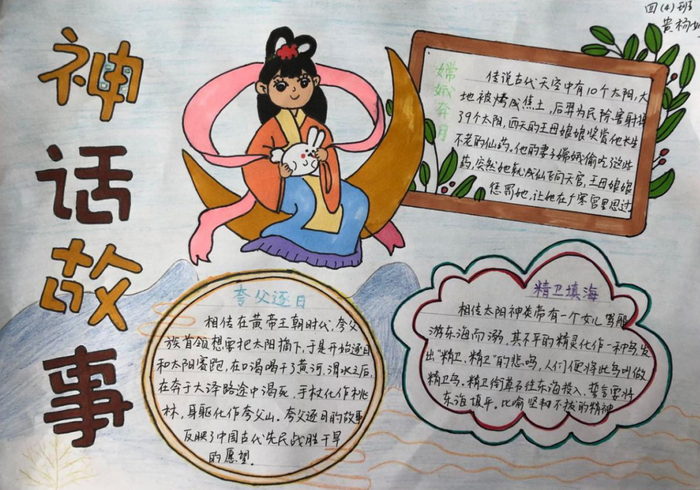 神话故事
四(4)班
黄杨
嫦娥奔月
传说古代天空中有10个太阳,大
地被烤成焦土,后羿为民除害射掉
了9个太阳,西天的王母娘娘奖赏他长生
不老的仙药。他的妻子嫦娥偷吃这些
药,突然她就成仙飞向天宫,王母娘娘
惩罚她,让她在广寒宫里思过
夸父逐日
相传在黄帝王朝时代,夸父
族首领想要把太阳摘下,于是开始逐日
和太阳赛跑,在口渴喝干了黄河,渭水之后,
在奔于大泽路途中渴死,手杖化作桃
林,身躯化作夸父山。夸父逐日的故事
反映了中国古代先民战胜干旱
的愿望。
精卫填海
相传太阳神炎帝有一个女儿
游东海而溺,其不平的精灵化作一种鸟,发
出"精卫,精卫"的悲鸣,人们便将此鸟叫做
精卫鸟,精卫衔着石往东海投入,誓言要将
东海填平。比喻坚韧不拔的精神